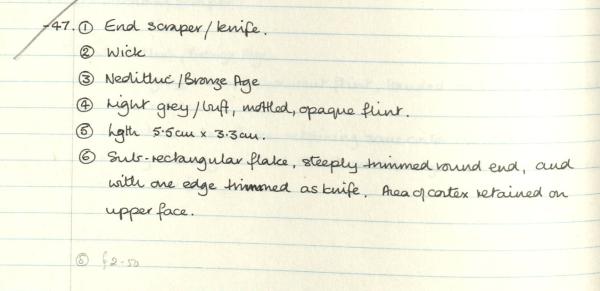 47. ① End scraper/knife.
② Wick
③ Neolithic/Bronze Age
④ Light grey/buff, mottled, opaque flint.
⑤ Lgth 5.5cm x 3.3cm.
⑥ Sub-rectangular flake, steeply trimmed round end, and
with one edge trimmed as knife. Area of cortex retained on
upper face.
⑧ £2-50